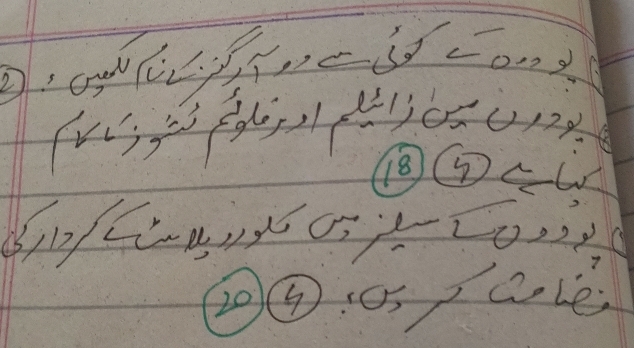 پودوں کے کوئی سے دو آرگنز کے نام لکھیں؟ (2)
پودوں میں زائیلم اور فلوئم ٹشوز کا کام
کیا ہے (4) (18)
پودوں کے سیلز میں کلوروپلاسٹ کے کردار کی
وضاحت کریں؟ (4) (20)